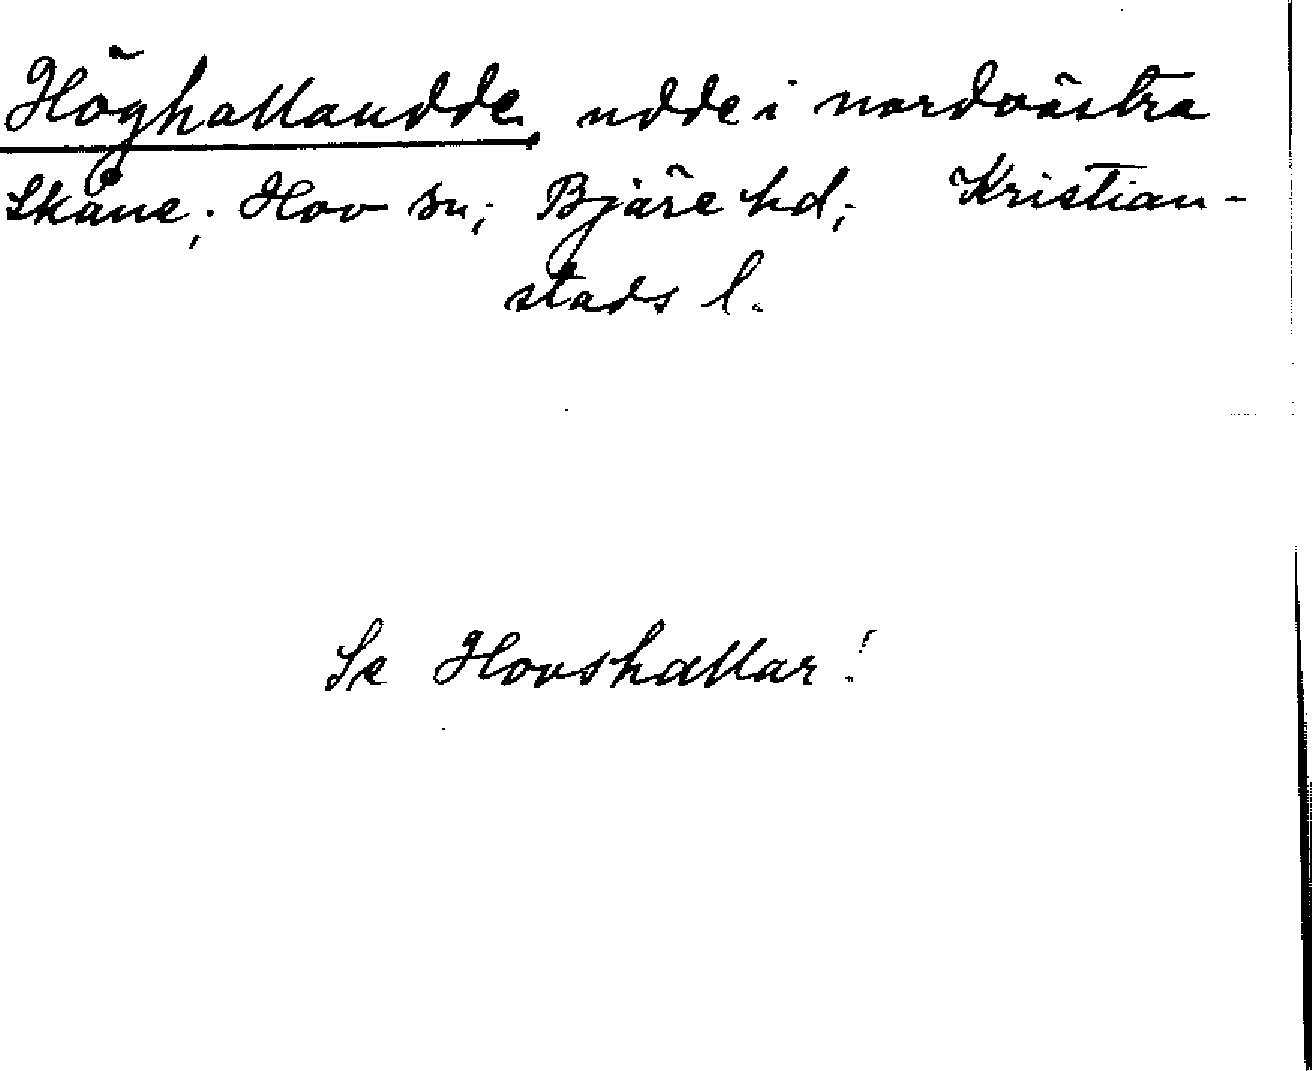 Höghallaudde, udde i nordvästra
Skåne; Hov sn; Bjäre hd; Kristian-
stads l.
Se Hovshallar!